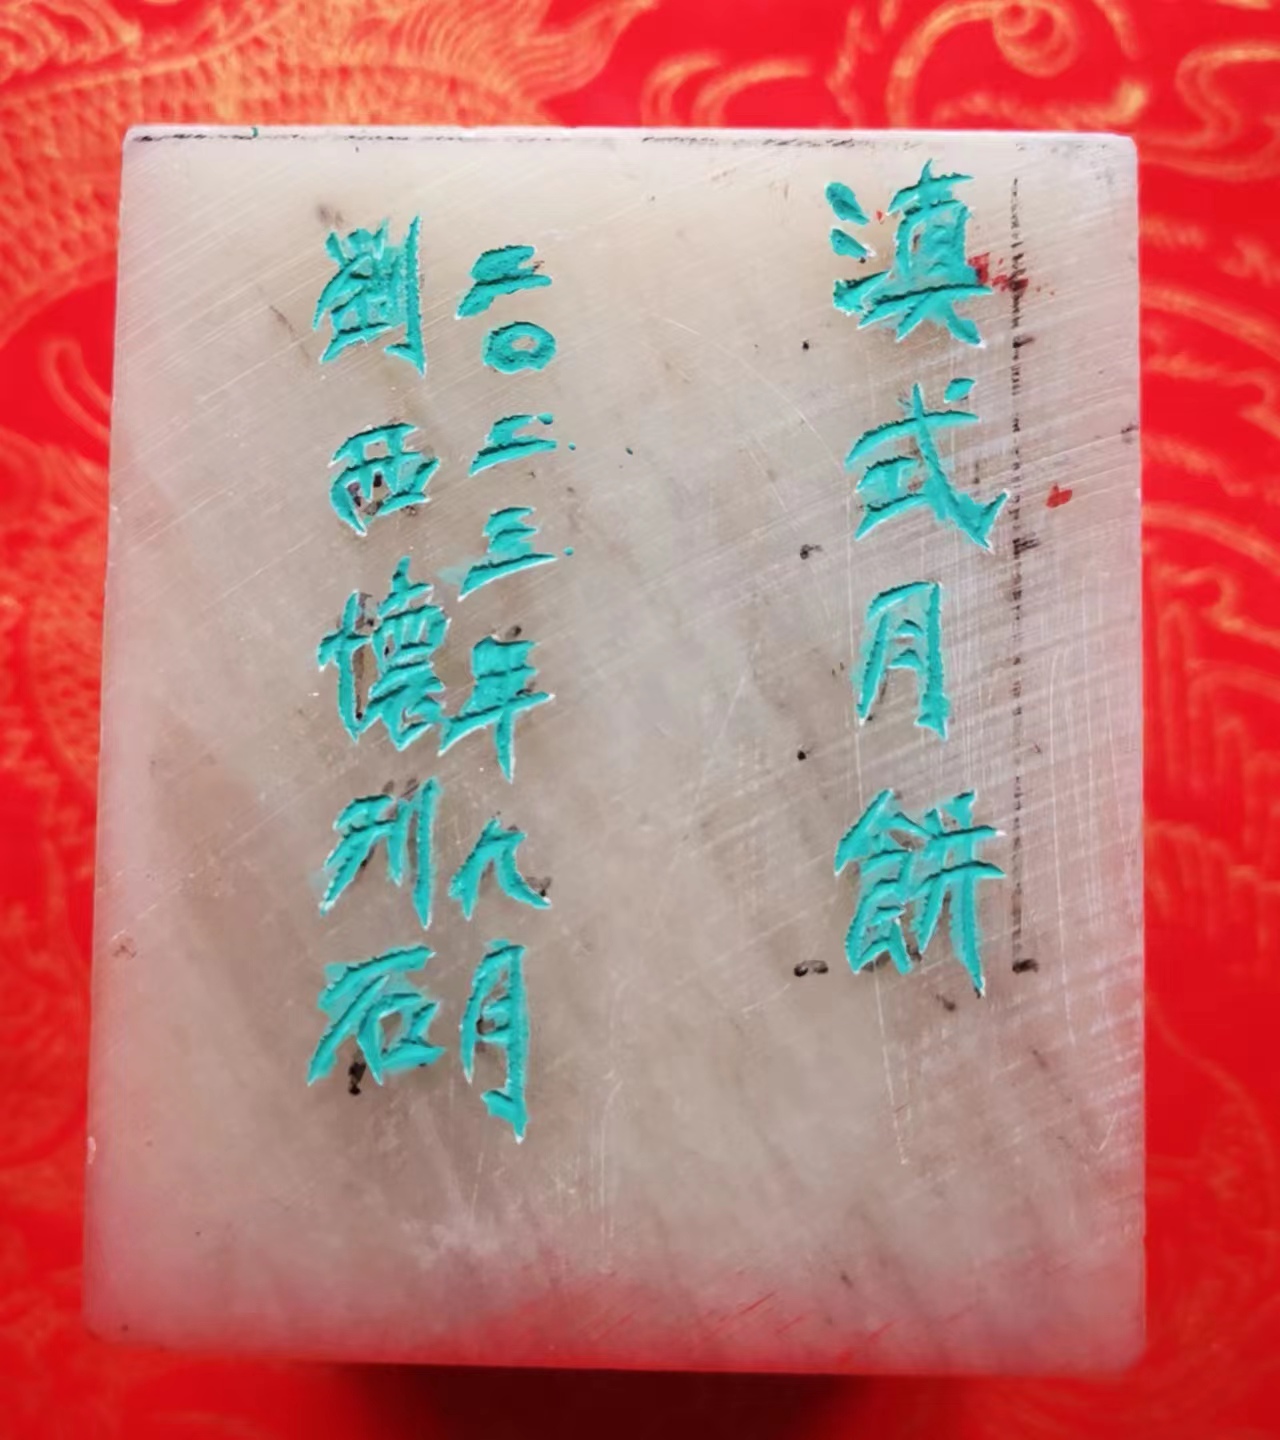 滇式月餅
二〇二三年九月
劉西懷刊石